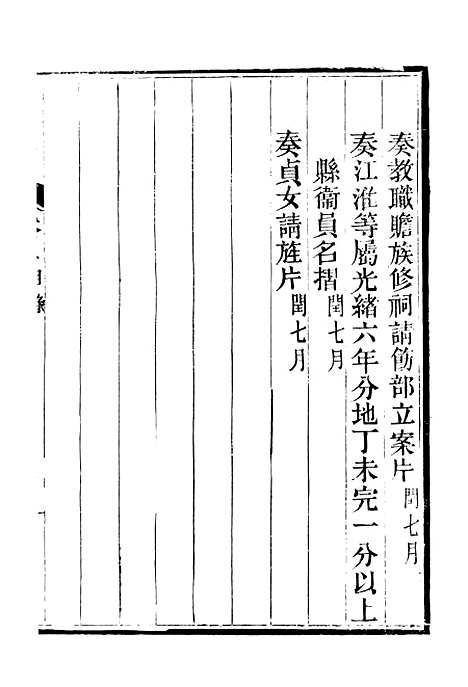 奏教職贍族修祠請飭部立案片 閏七月
奏江淮等屬光緒六年分地丁未完一分以上
縣衞員名摺 閏七月
奏貞女請旌片 閏七月
目錄